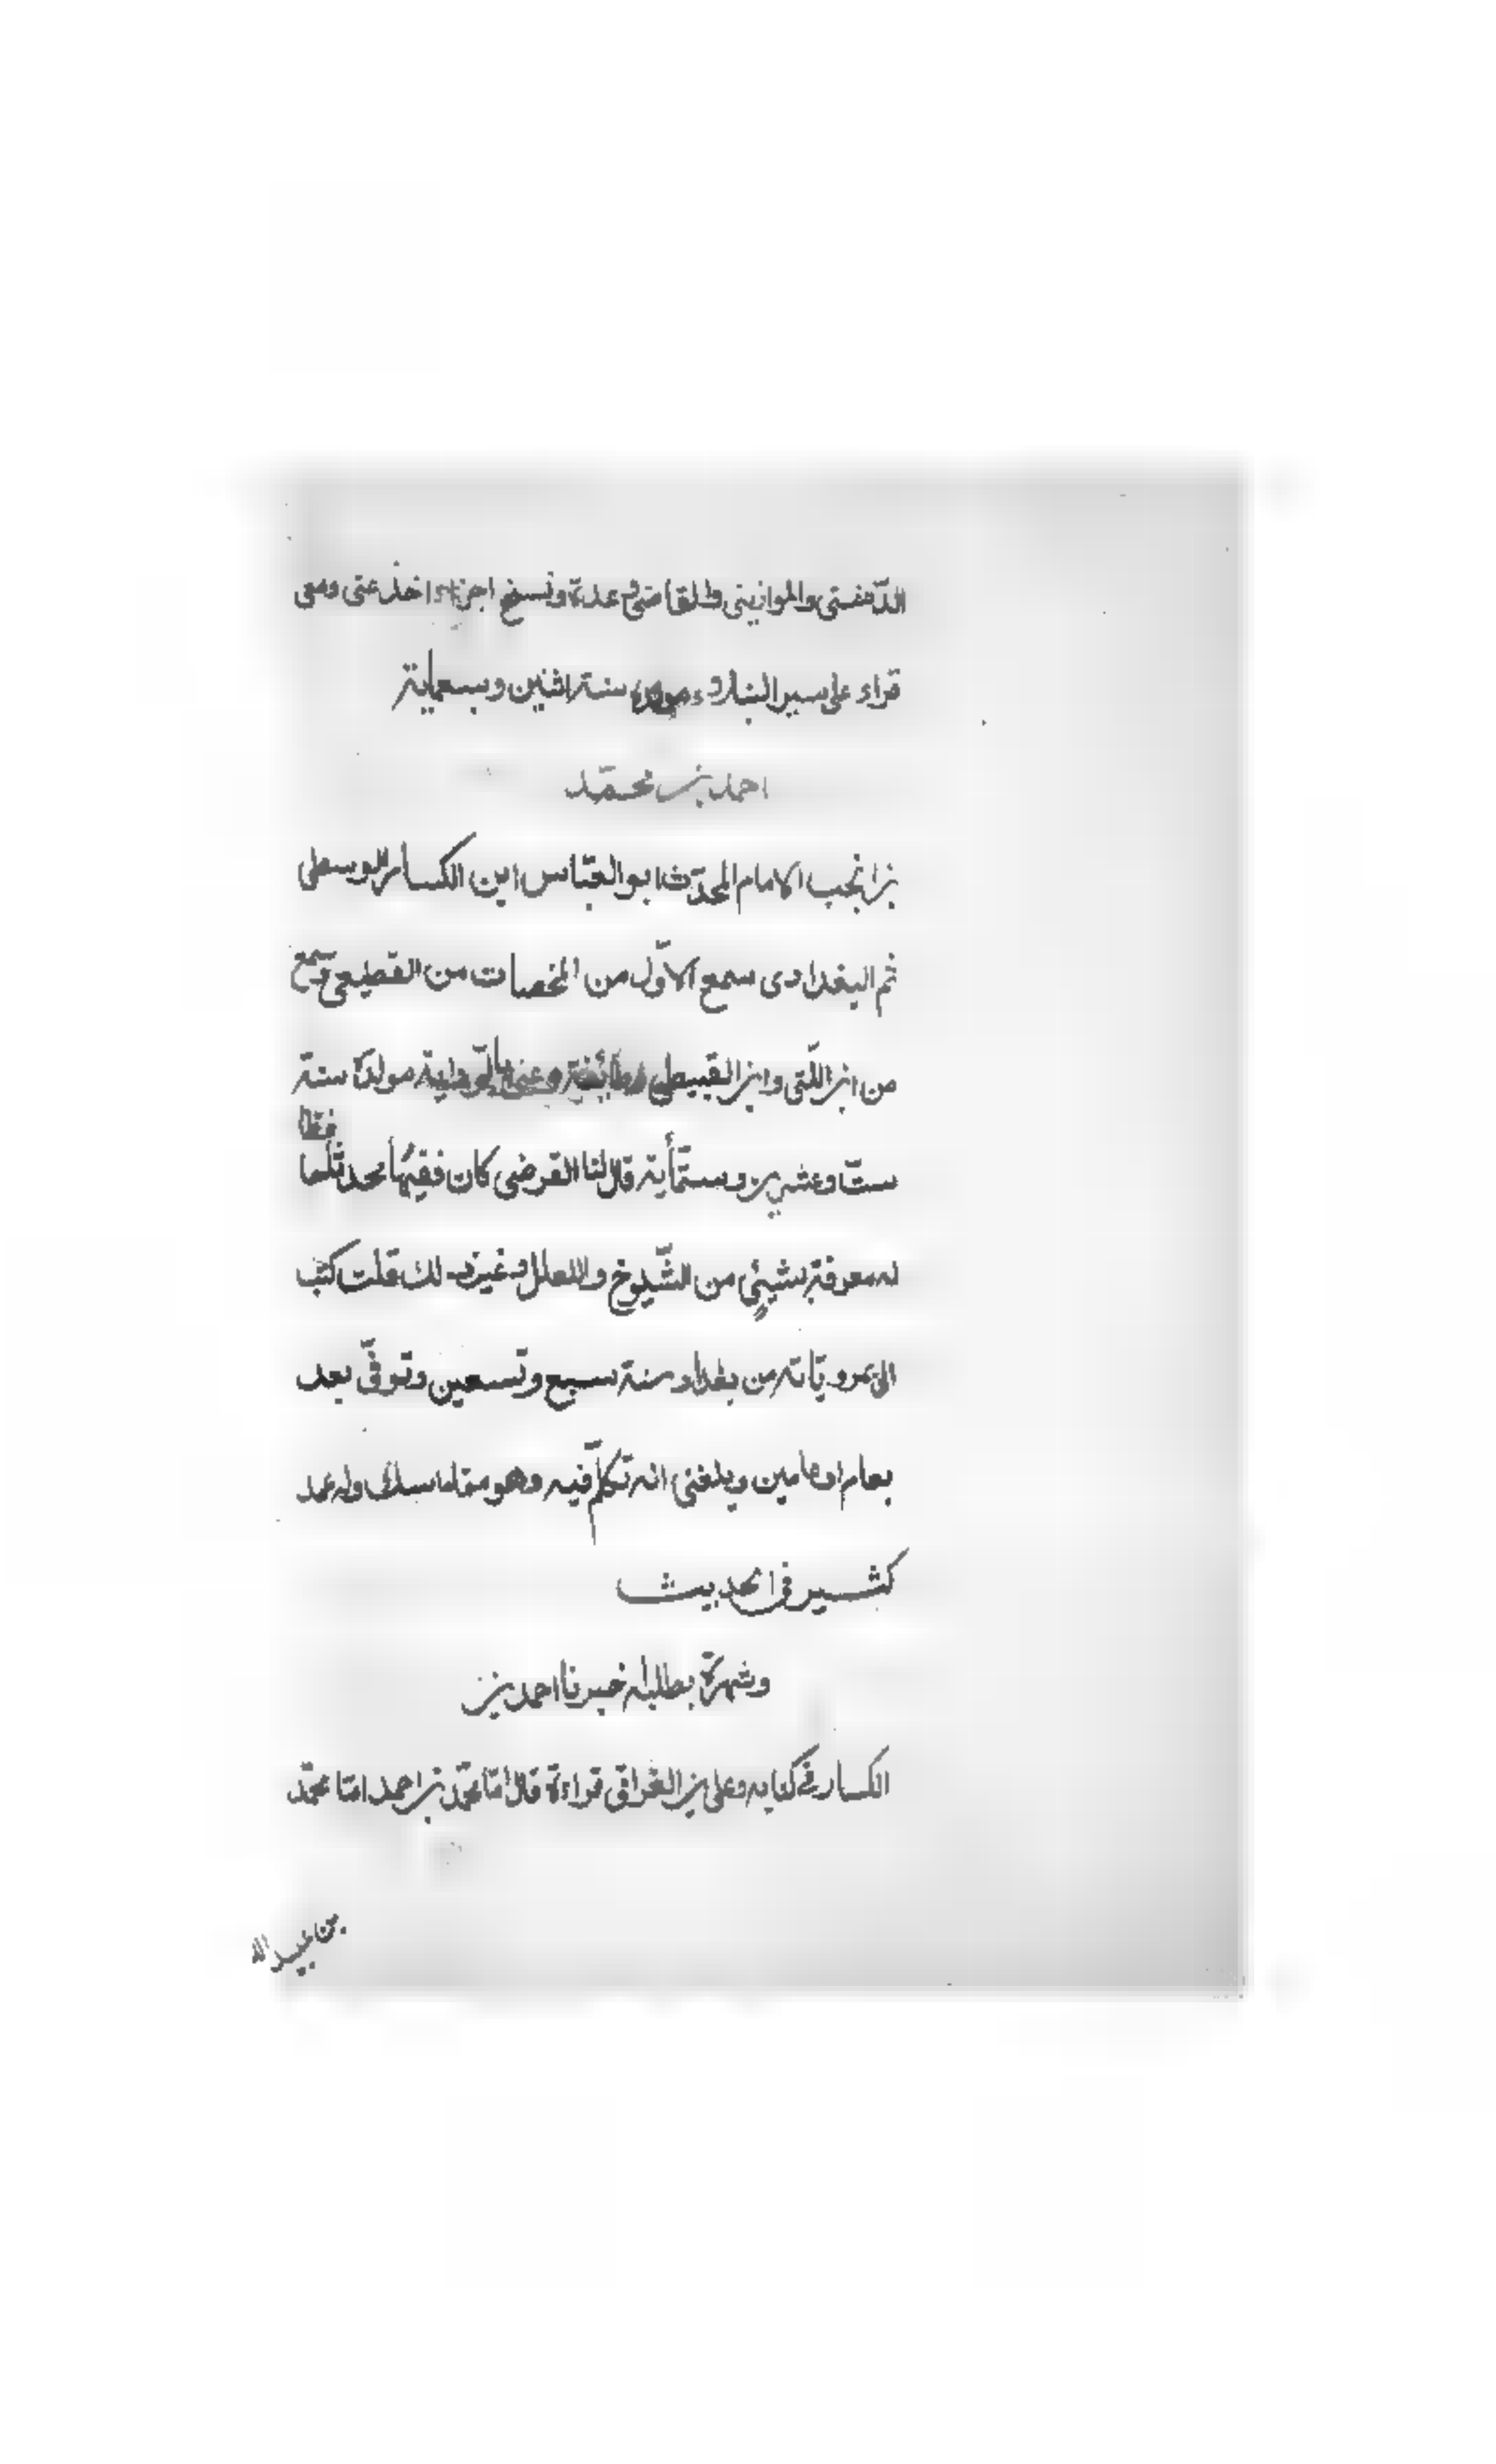 الدمفتى والموازينى والقاضى وعدة ونسخ اجزاء اخذ عنى ومعى
قراء على سير النبلاء سنة اثنين وسبعماية
احمد بن محمد
بن انجب الامام المحدّث ابو العبّاس ابن الكسار الوسطى
ثم البغدادى سمع الاوّل من المخصات من القطيعى وسمع
من ابن اللّتى وابن القبيطى مولده سنة
ستّ وعشرين وستّمأية قال لنا الفرضى كان فقيهًا محدثا
حفظا
له معرفة بشيئى من الشّيوخ والعلل وغير ذلك قلت كتب
الىّ بمروياته من بغداد سنة سبع وتسعين وتوفّى بعد
بعام او عامين وبلغنى انه تكلّم فيه وهو متماسك وله عمل
كثير فى الحديث
وشهرة بطلبه خبرنا احمد بن
الكسار فى كتابه وعلى بن الغرافى قراءة قال انا محمّد بن احمد انا محمّد
بن عبيد الله